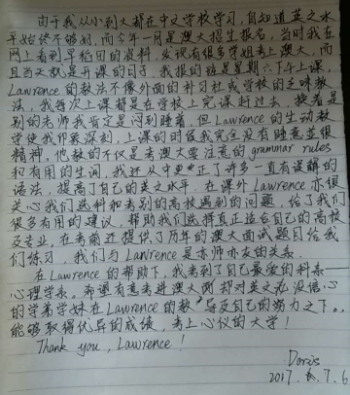 由于我从小到大都在中文学校学习，自知道英文水
平始终不够好，而今年一月是澳大招生报名，当时我在
网上看到早稻田的资料，发现有很多学姐考上澳大，而
且当文就是开课的日子，我报的
Lawrence的教法不像外面的补习社或学校的乏味教
法，我每次上课都是在学校上完课赶过去，换着是
别的老师我肯定是闷到睡着，但Lawrence的生动教
学使我印象深刻，上课的时候我完全没有睡意兼很
精神。他教的不仅是考澳大要注意的grammar rules
和有用的生词，我还从中更正了许多一直有误解的
语法，提高了自己的英文水平。在课外Lawrence亦很
关心我们选科和考别的高校遇到的问题，给了我们
很多有用的建议，帮助我们选择真正适合自己的高校
及专业，在考前还提供了历年的澳大面试题目给我
们练习，我们与Lawrence是亦师亦友的关系。
在Lawrence的帮助下，我考到了自己最爱的科系—
心理学系。希望有意考进澳大而却对英文没信心
的学弟学妹在Lawrence的教导及自己的努力之下，
能够取得优异的成绩，考上心仪的大学！
Thank you, Lawrence!
Doris
2017. 6. 7. 6